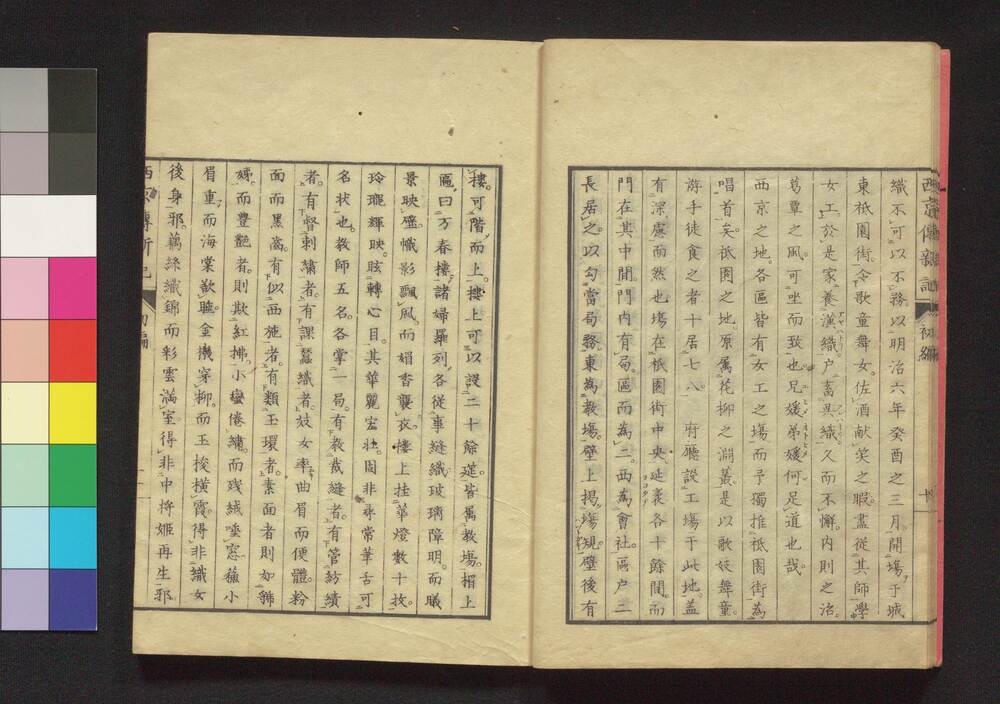 西京傳新記 初編 十
織不可以不務以明治六年癸酉之三月開場于城
東祇園街令歌童舞女佐酒献笑之暇盡從其師學
女工於是家養漢織戸畜呉織久而不懈内則之治
葛覃之風可坐而致也兄媛弟媛何足道也哉
西京之地各區皆有女工之場而予獨推祇園街為
唱首矣祇園之地原属花柳之淵叢是以歌妓舞童
游手徒食之者十居七八 府廳設工場于此地蓋
有深慮而然也場在祇園街中央延袤各十餘間而
門在其中開門内有局區而為二西為會社區戸二
長居之以勾當局務東為教場壁上掲場規壁後有
樓可階而上樓上可以設二十餘筵皆属教場楣上
匾曰万春樓諸婦羅列各從事縫織玻璃障明而曦
景映壁幟影飄風而娟香襲衣樓上挂華燈數十枚
玲瓏輝映眩轉心目其華麗宏壮固非尋常筆舌可
名状也教師五名各掌一局有教裁縫者有管紡績
者有督刺繍者有課蠶織者妓女率曲眉而便體粉
面而黒齒有似西施者有類玉環者素面者則如
嫣而豊艶者則欺紅拂小蠻倦繍而残絨唾窓蘓小
眉重而海棠歛睡金襪穿柳而玉梭横霞得非織女
後身邪藕絲織錦而彩雲満室得非中将姫再生邪
西京傳新記 初編